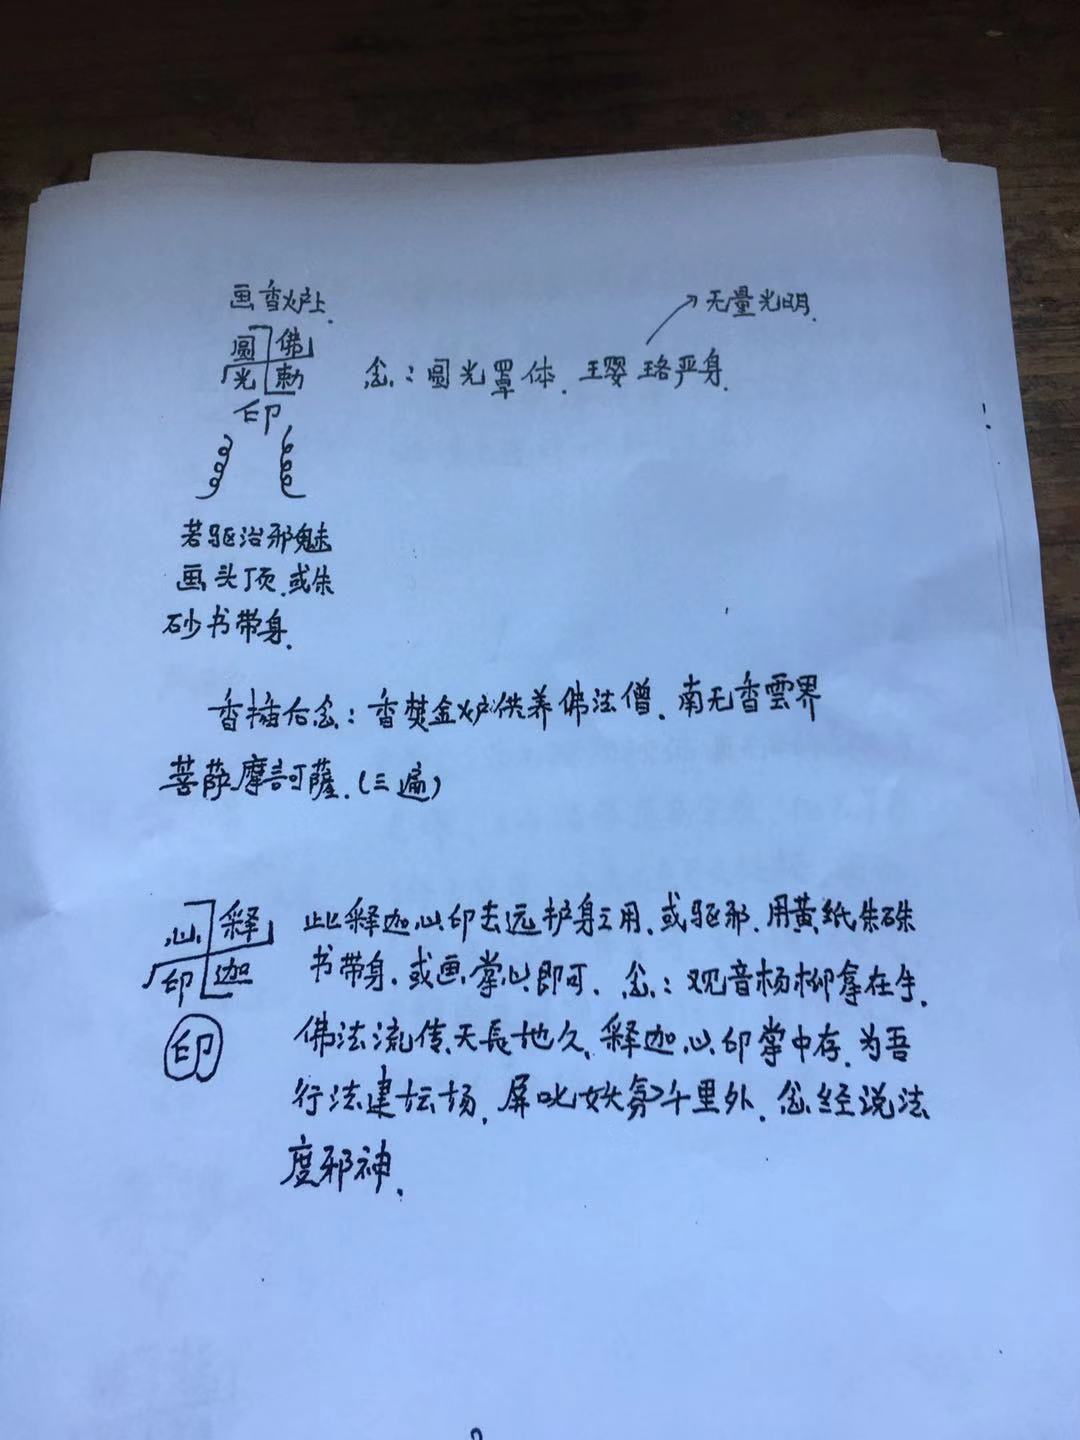 画香炉上.
无量光明.
圆佛
光勅
印
念:圆光罩体.璎珞严身.
若驱治邪魅
画头顶.或朱
砂书带身.
香插后念:香焚金炉供养佛法僧.南无香雲界
菩萨摩訶薩.(三遍)
心释
印迦
印
此释迦心印去远护身之用.或驱邪.用黄纸朱砵
书带身.或画掌心即可.念:观音杨柳拿在手.
佛法流传天長地久.释迦心印掌中存.为吾
行法建坛场.屏叱妖氛千里外.念经说法
度邪神.